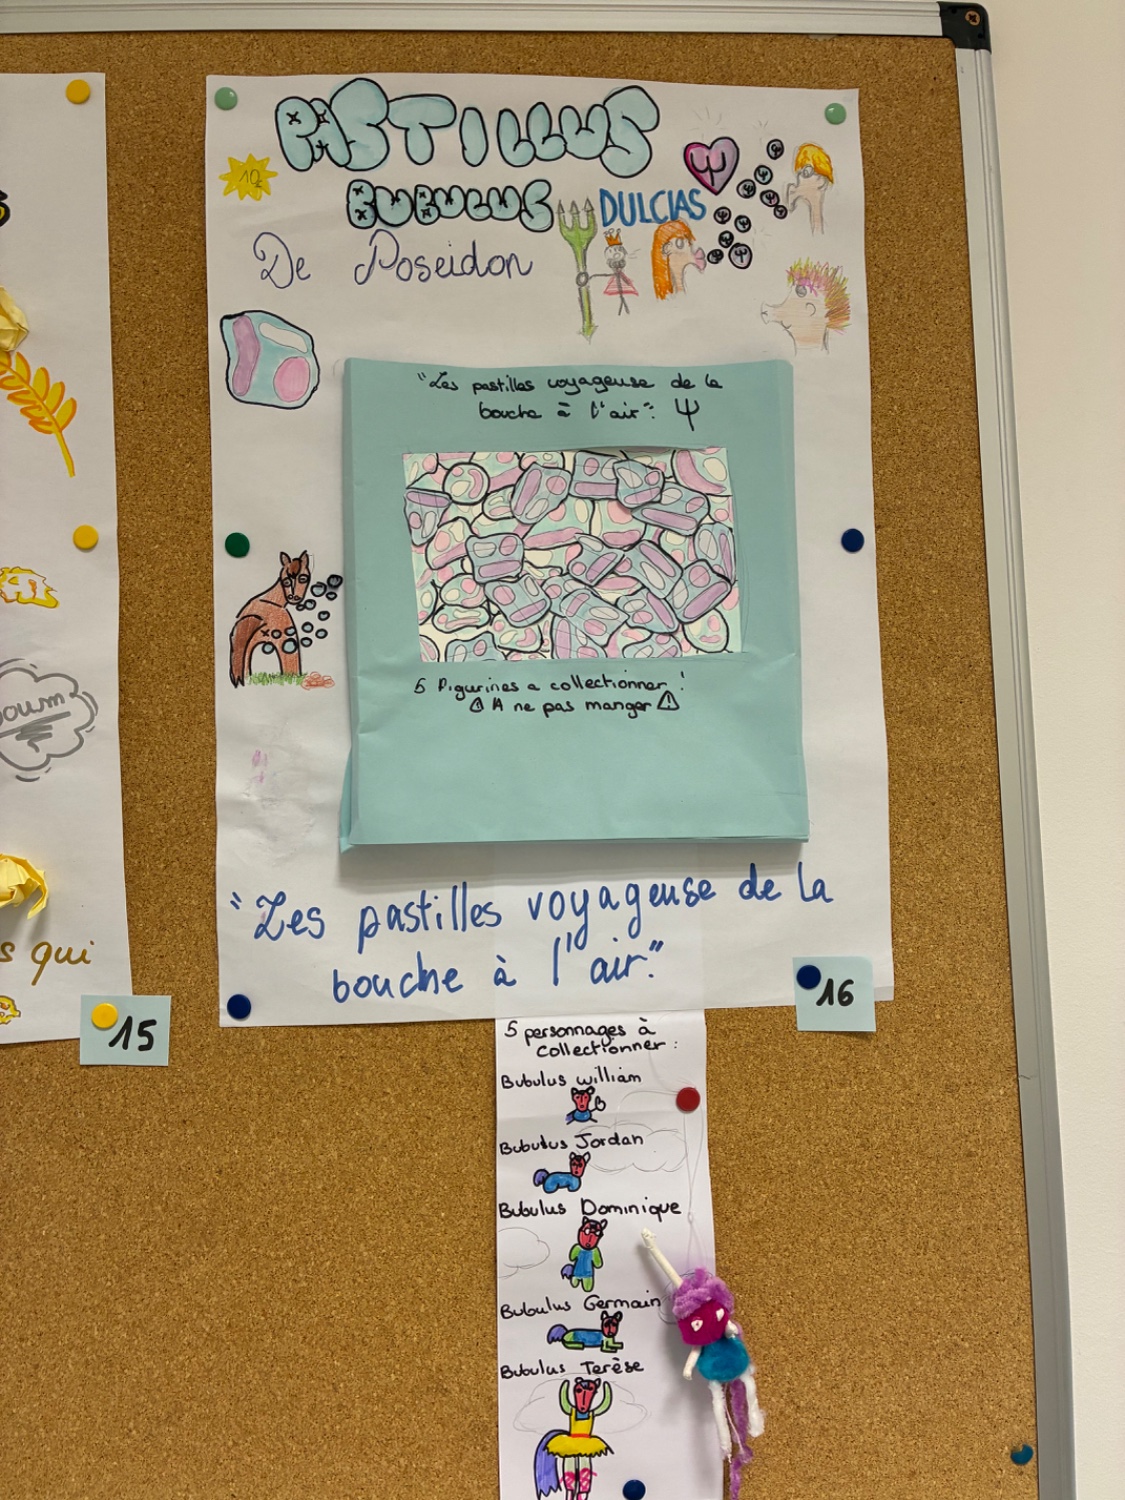 PASTILLUS
10€
BUBULUS
DULCIAS
De Poseidon
"Les pastilles voyageuse de la
bouche à l'air": Ψ
5 Figurines a collectionner !
A ne pas manger
"Les pastilles voyageuse de la
bouche à l'air."
16
5 personnages à
collectionner :
Bubulus William
Bubulus Jordan
Bubulus Dominique
Bubulus Germain
Bubulus Terèse
oum
s qui
15